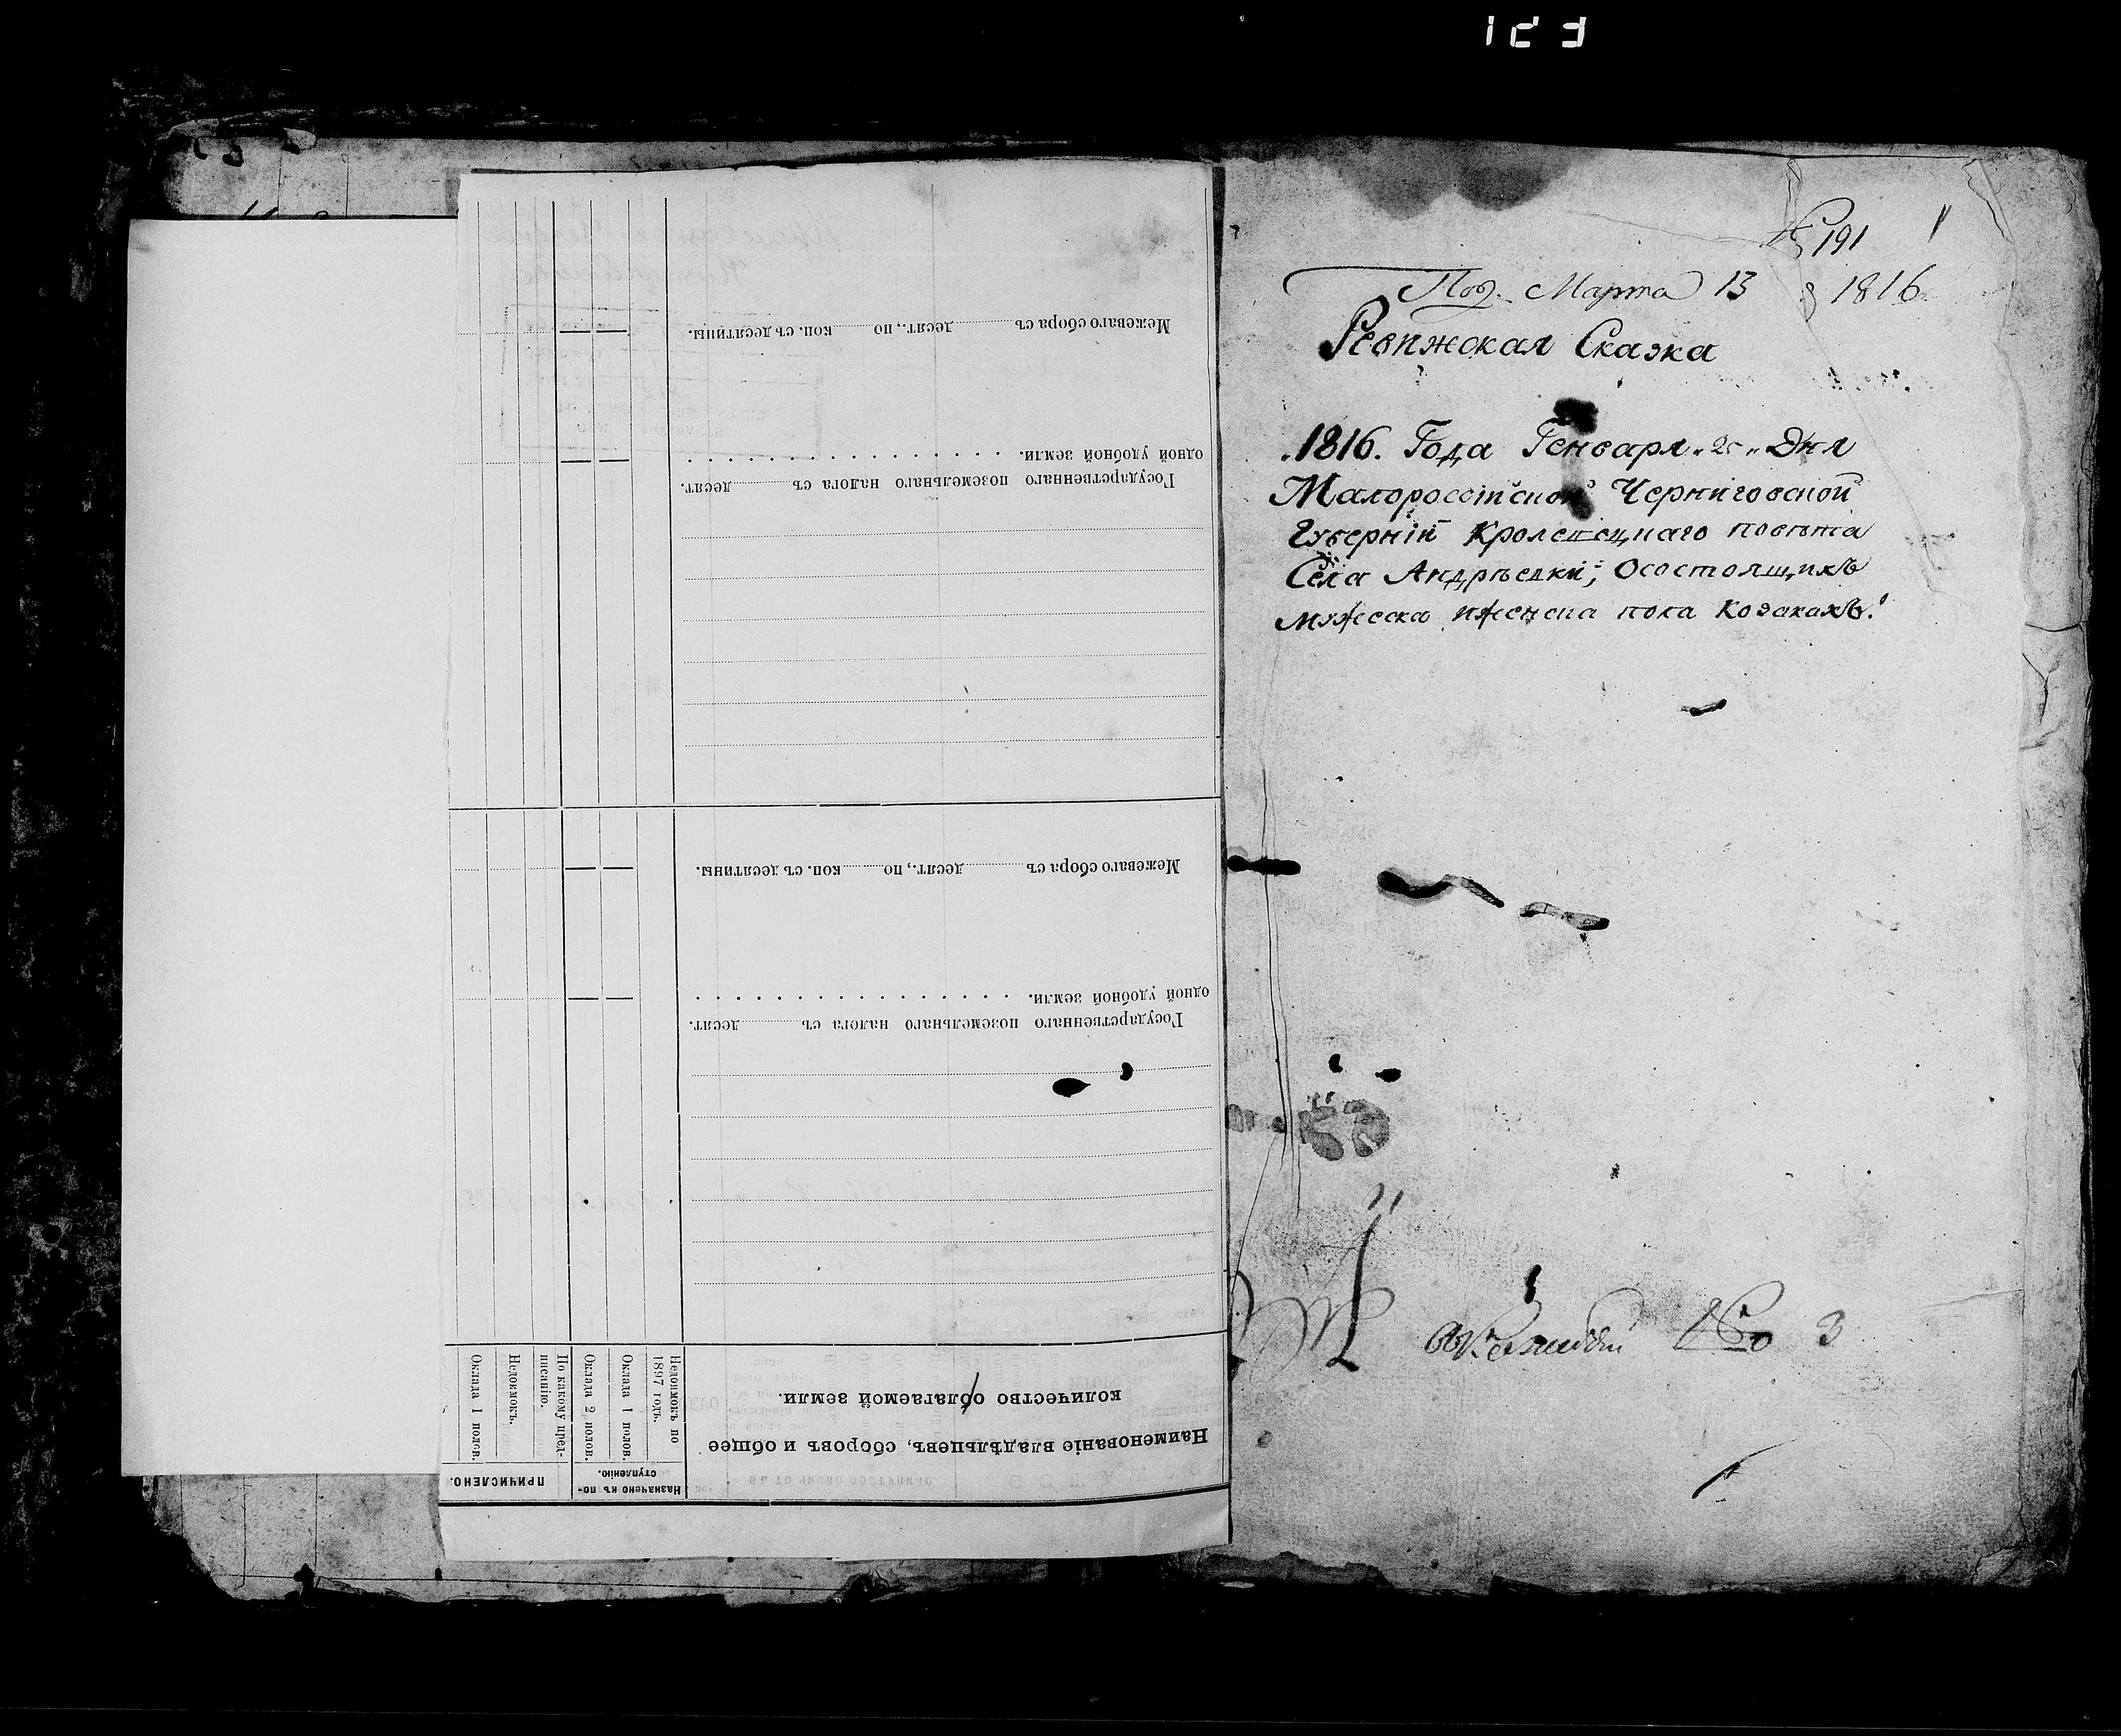 Межеваго сбора съ десят., по коп. съ десятины.
Государственнаго поземельнаго налога съ десят.
одной удобной земли.
Межеваго сбора съ десят., по коп. съ десятины.
Государственнаго поземельнаго налога съ десят.
одной удобной земли.
Наименованіе владѣльцевъ, сборовъ и общее
количество облагаемой земли.
Назначено къ по-
ступленію.
Недоимокъ по
1897 годъ.
Оклада 1 полов.
Оклада 2 полов.
ПРИЧИСЛЕНО.
По какому пред-
писанію.
Недоимокъ.
Оклада 1 полов.
№ 191
Под. Марта 13 1816
Ревижская Сказка
1816. Года Генваря Дня
Малоросс​ійской Черниговской
Губерніи Кролевецкаго повѣта
Села Андрѣевки, Осостоящихъ
мужеска иженска пола Козакахъ.
№ 3